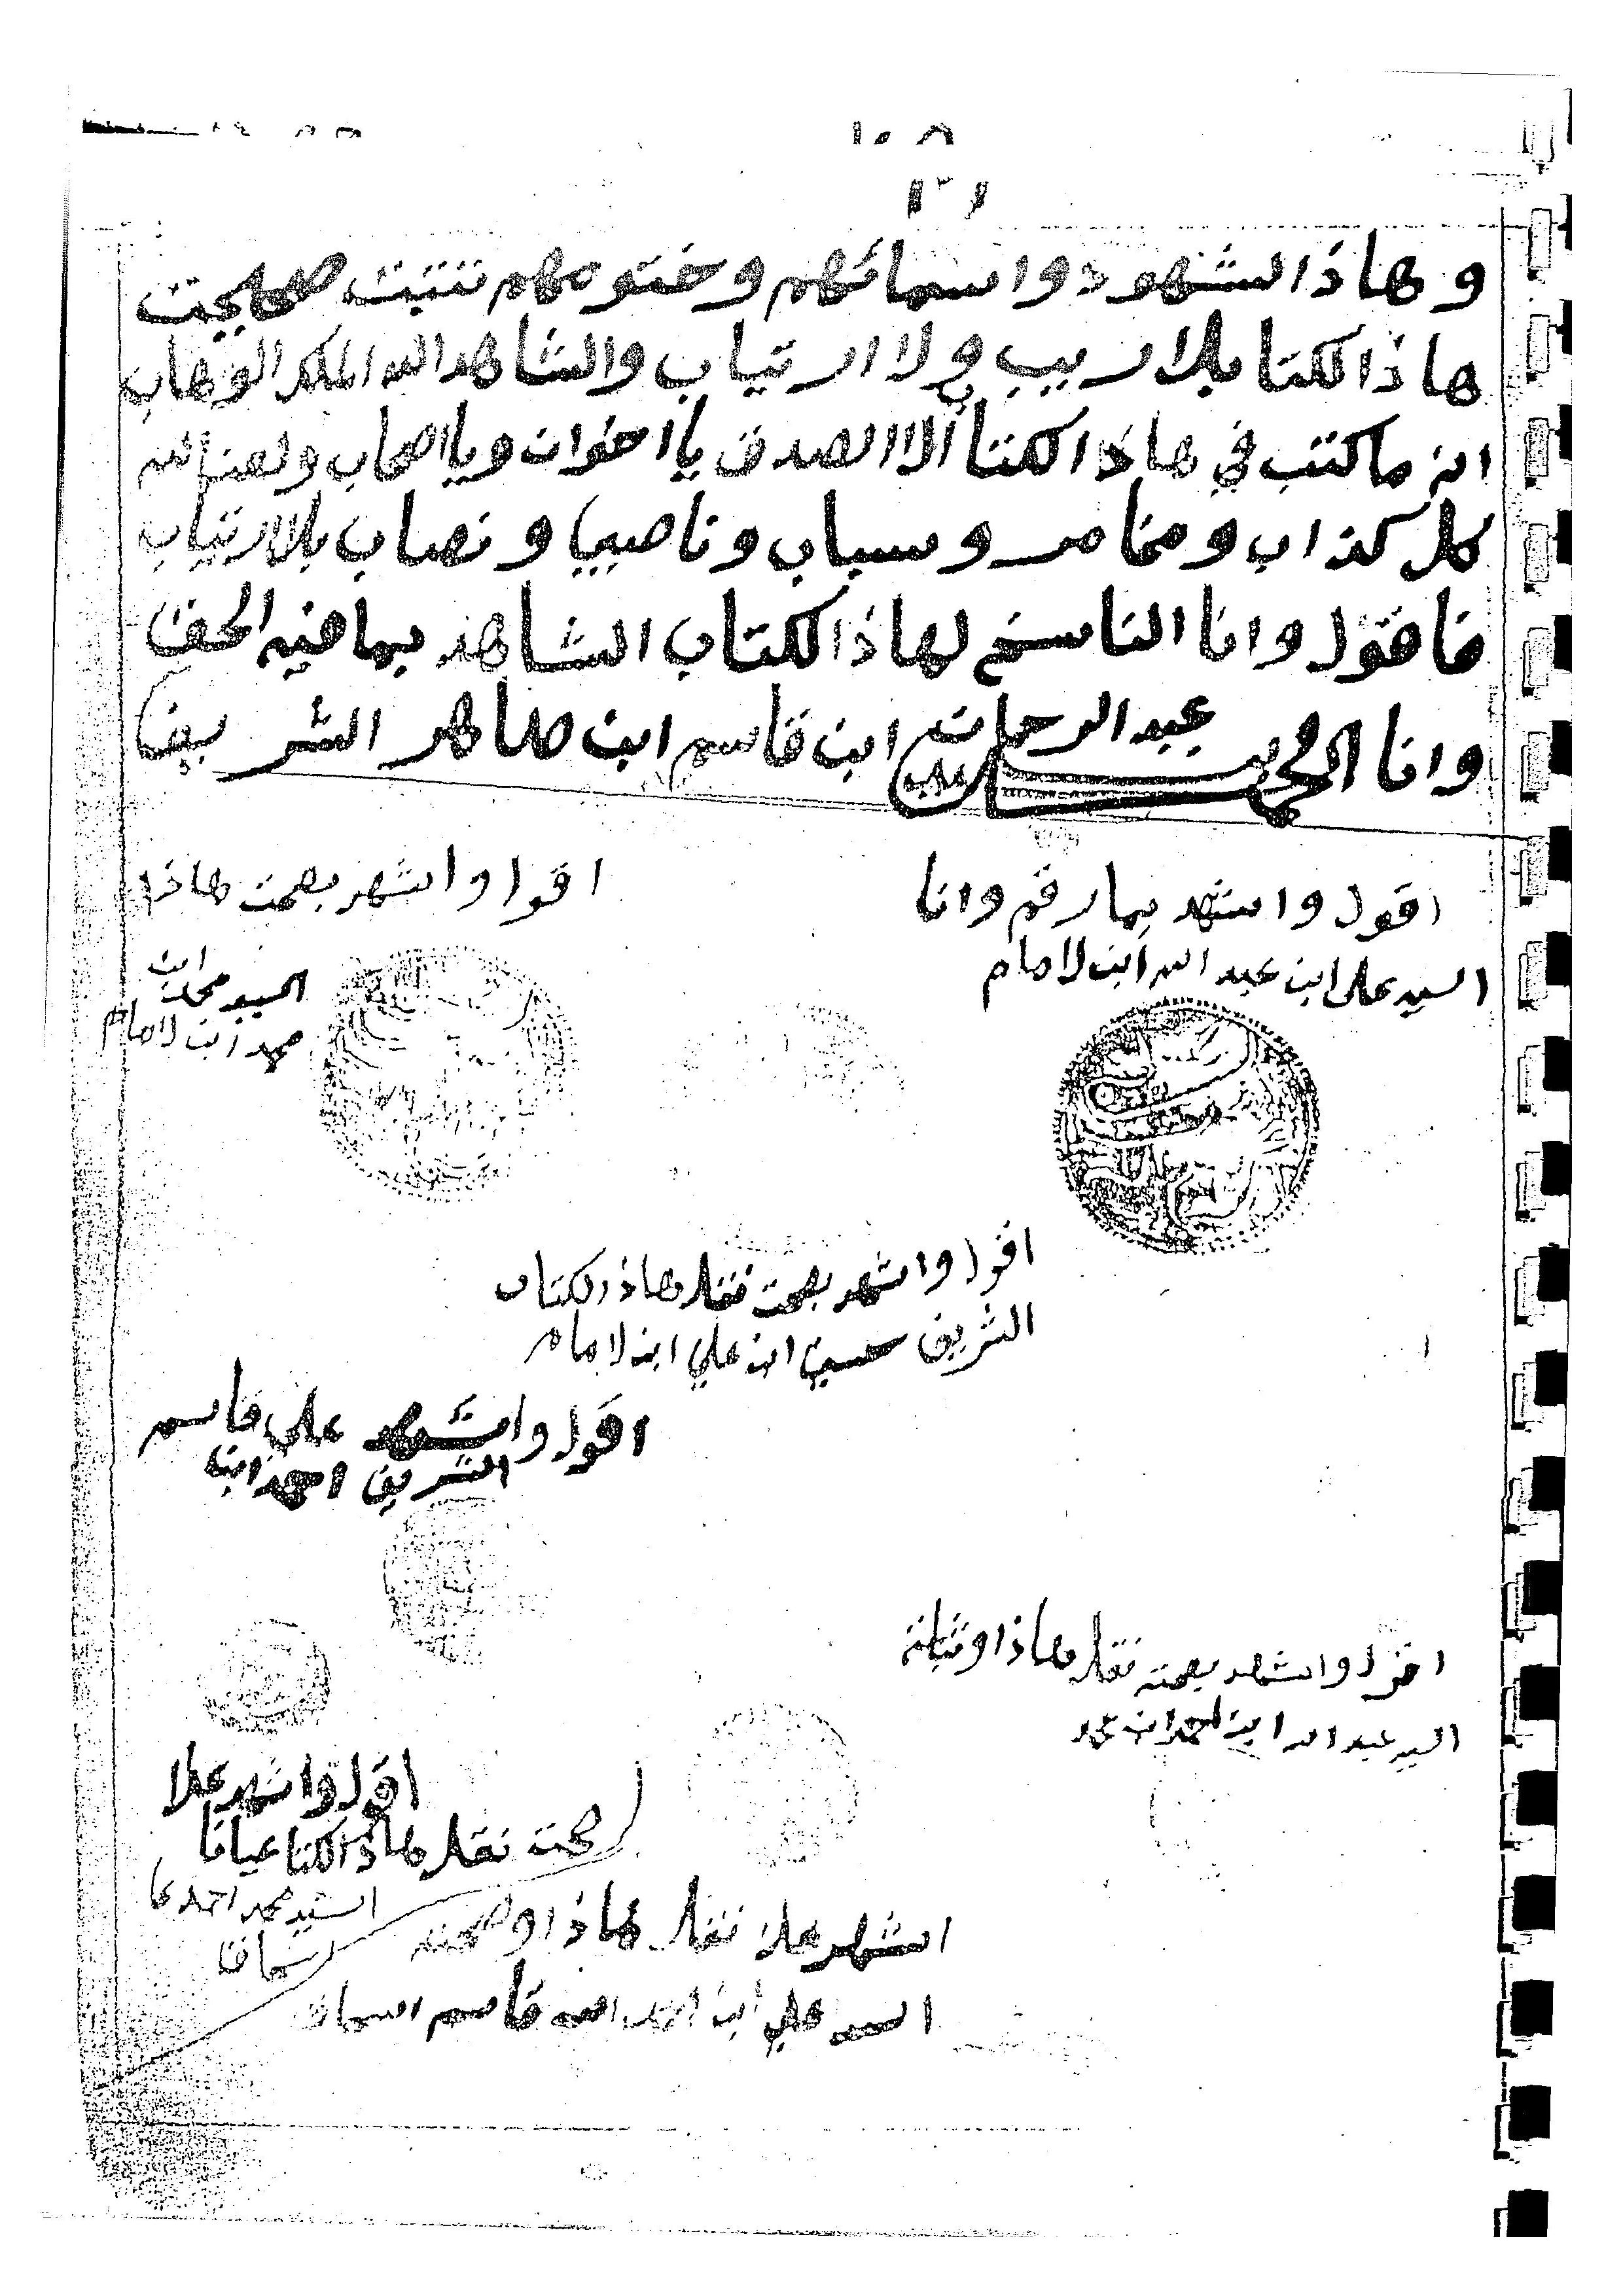 ١٠٨
وهاذا الشهود واسمائهم وختومهم تثبت صحيحت
هاذا الكتا بلا ريب ولا ارتياب والشاهد الله الملك الوهاب
انه ما كتب في هاذا الكتا الا الصدق يا اخوان ويا اصحاب ولعنة الله
كل كذاب ومخامر وسباب وناصبيا ونصاب بلا ارتياب
فاقول وانا الناسخ لهاذا الكتاب الشاهد بما فيه الحق
وانا عبد الرحمان ابن قاسم ابن طاهر الشريف
اقول واشهد بما رقم وانا
السيد علي ابن عبد الله ابن لامام
اقول واشهد بصحت هاذا
السيد ابن
محمد ابن لامام
اقول واشهد بصحت نقل هاذا الكتاب
الشريف حسين ابن علي ابن لامام
اقول واشهد علي قاسم
الشريف احمد ابن
اقول واشهد بصحته نقل هاذا
السيد عبد الله ابن احمد ابن محمد
اقول واشهد علا
صحت نقل هاذا الكتا عيانا
السيد محمد احمد
اشهد علا نقل هاذا وصحته
السيد علي ابن احمد قاسم